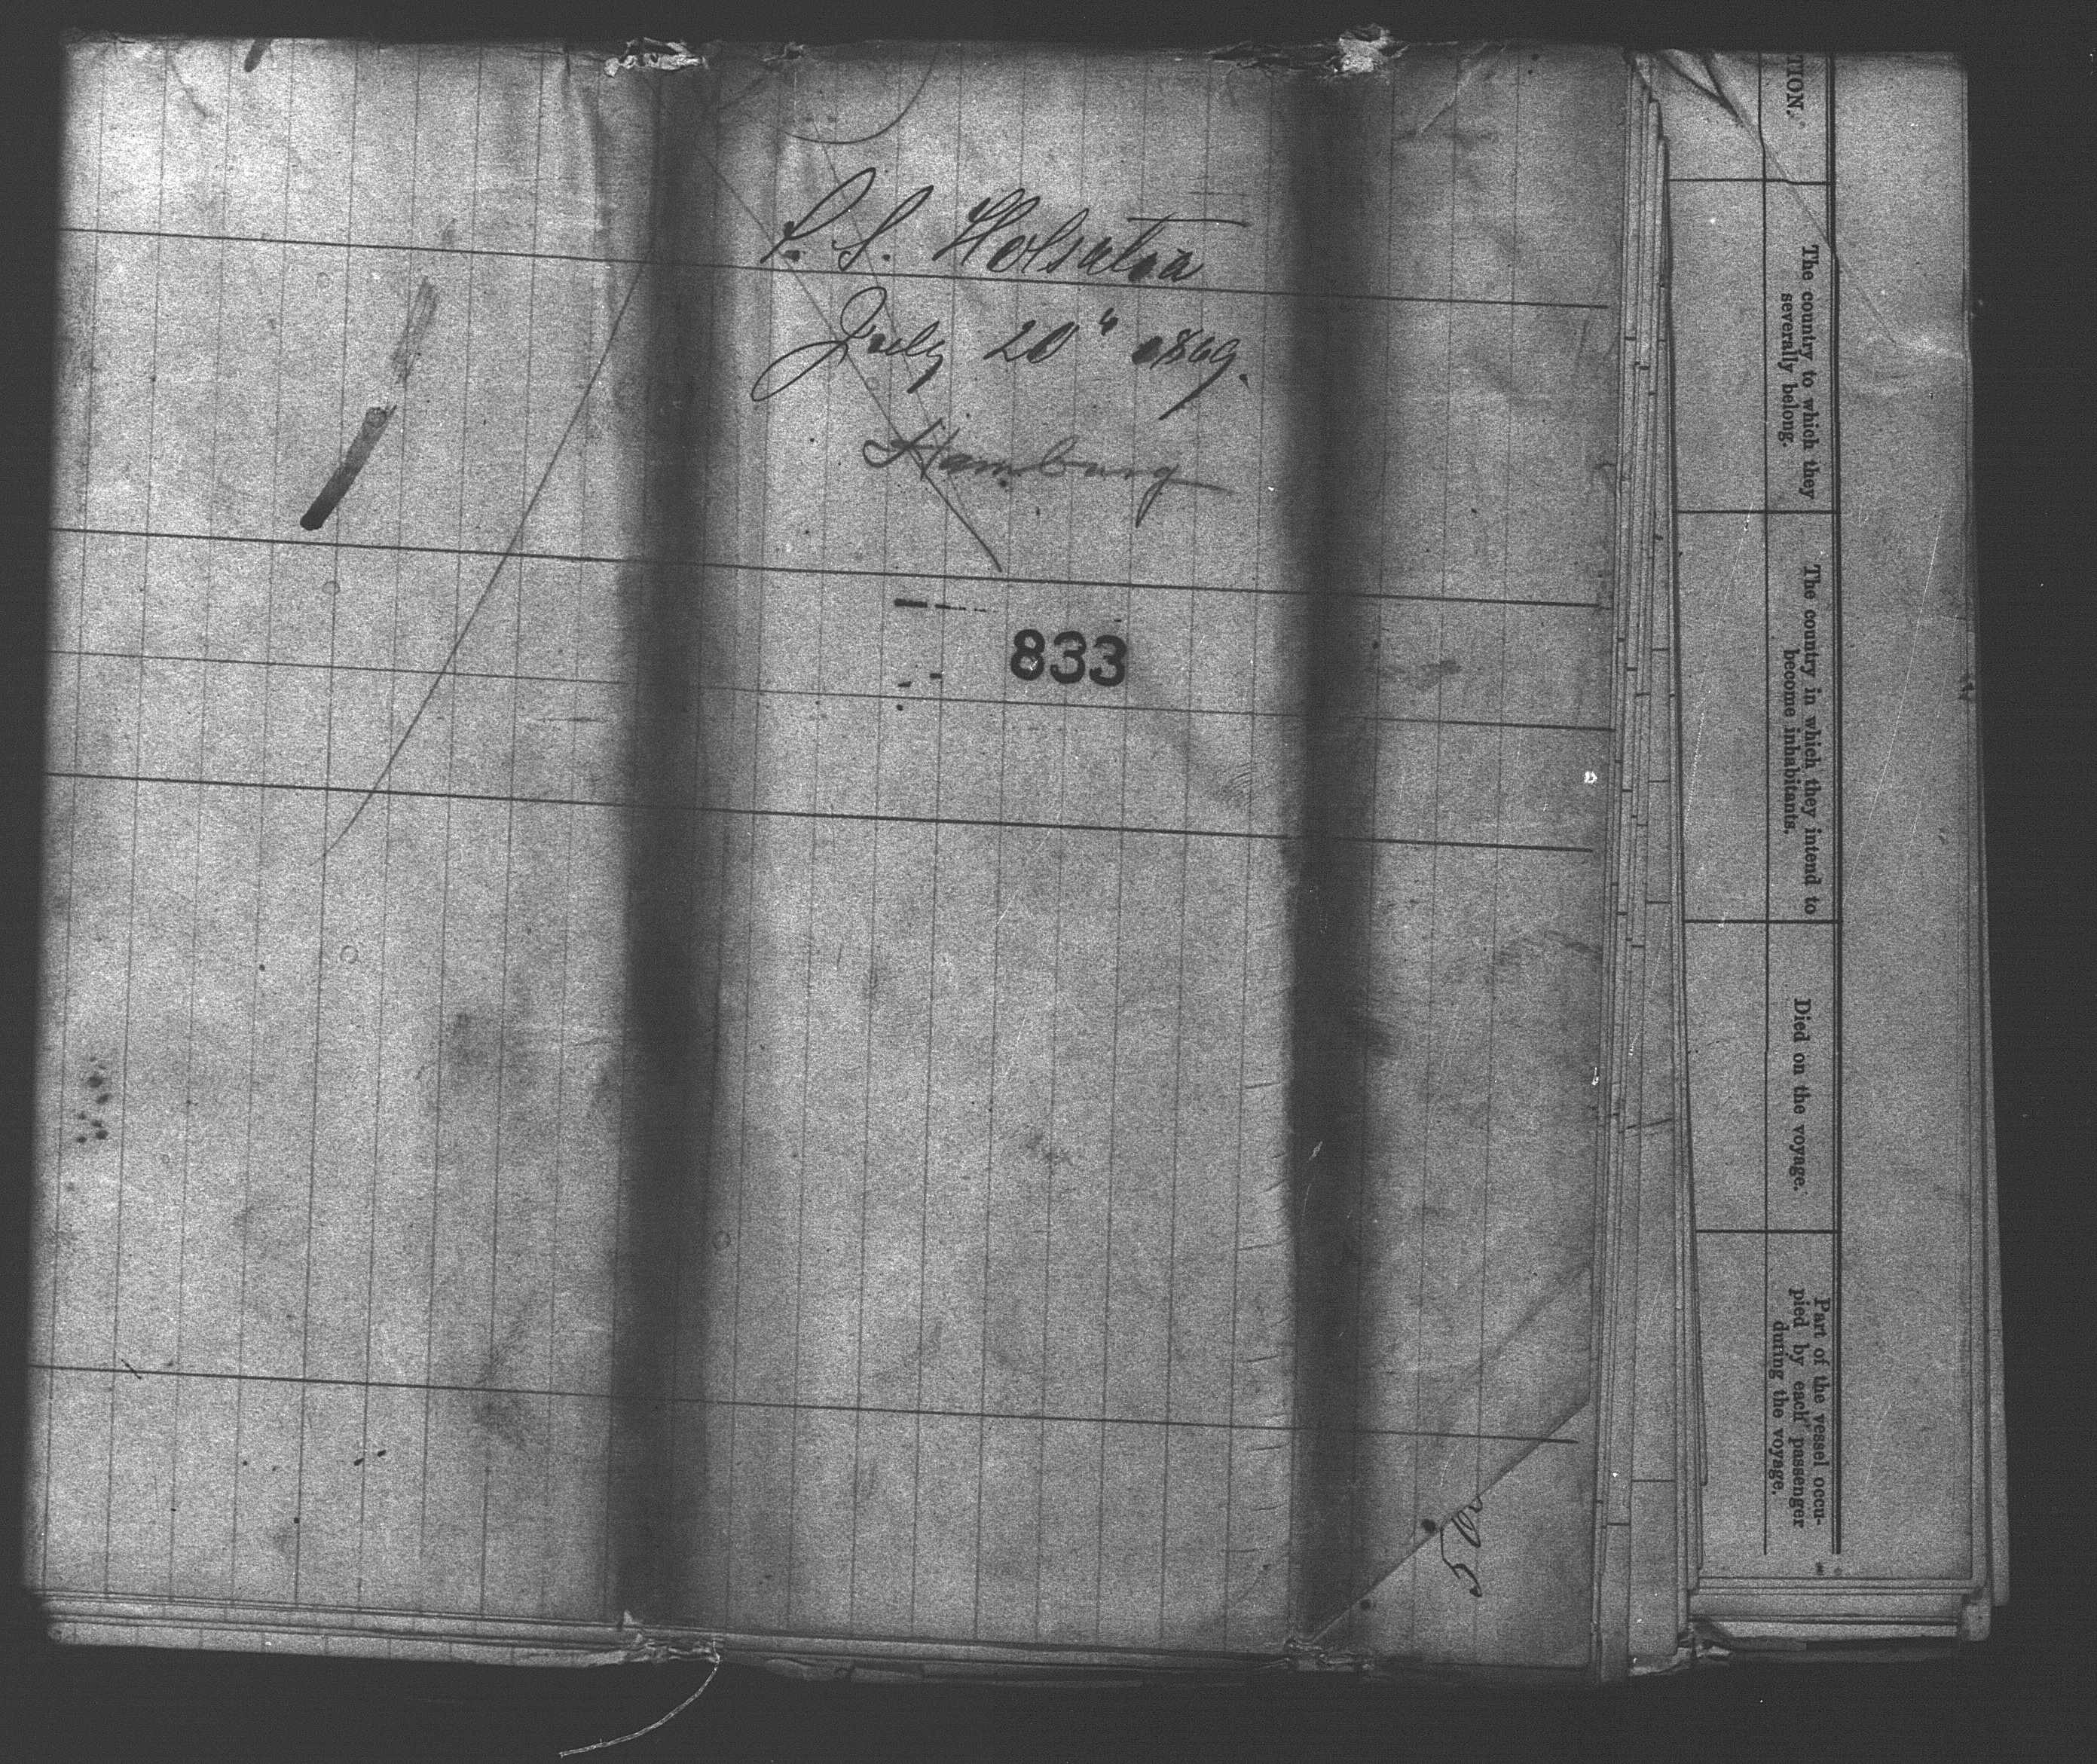 S. S. Holsatia
July 20" 1869.
Hamburg
833
TION.
The country to which they
severally belong.
The country in which they intend to
become inhabitants.
Died on the voyage.
Part of the vessel occu-
pied by each passenger
during the voyage.